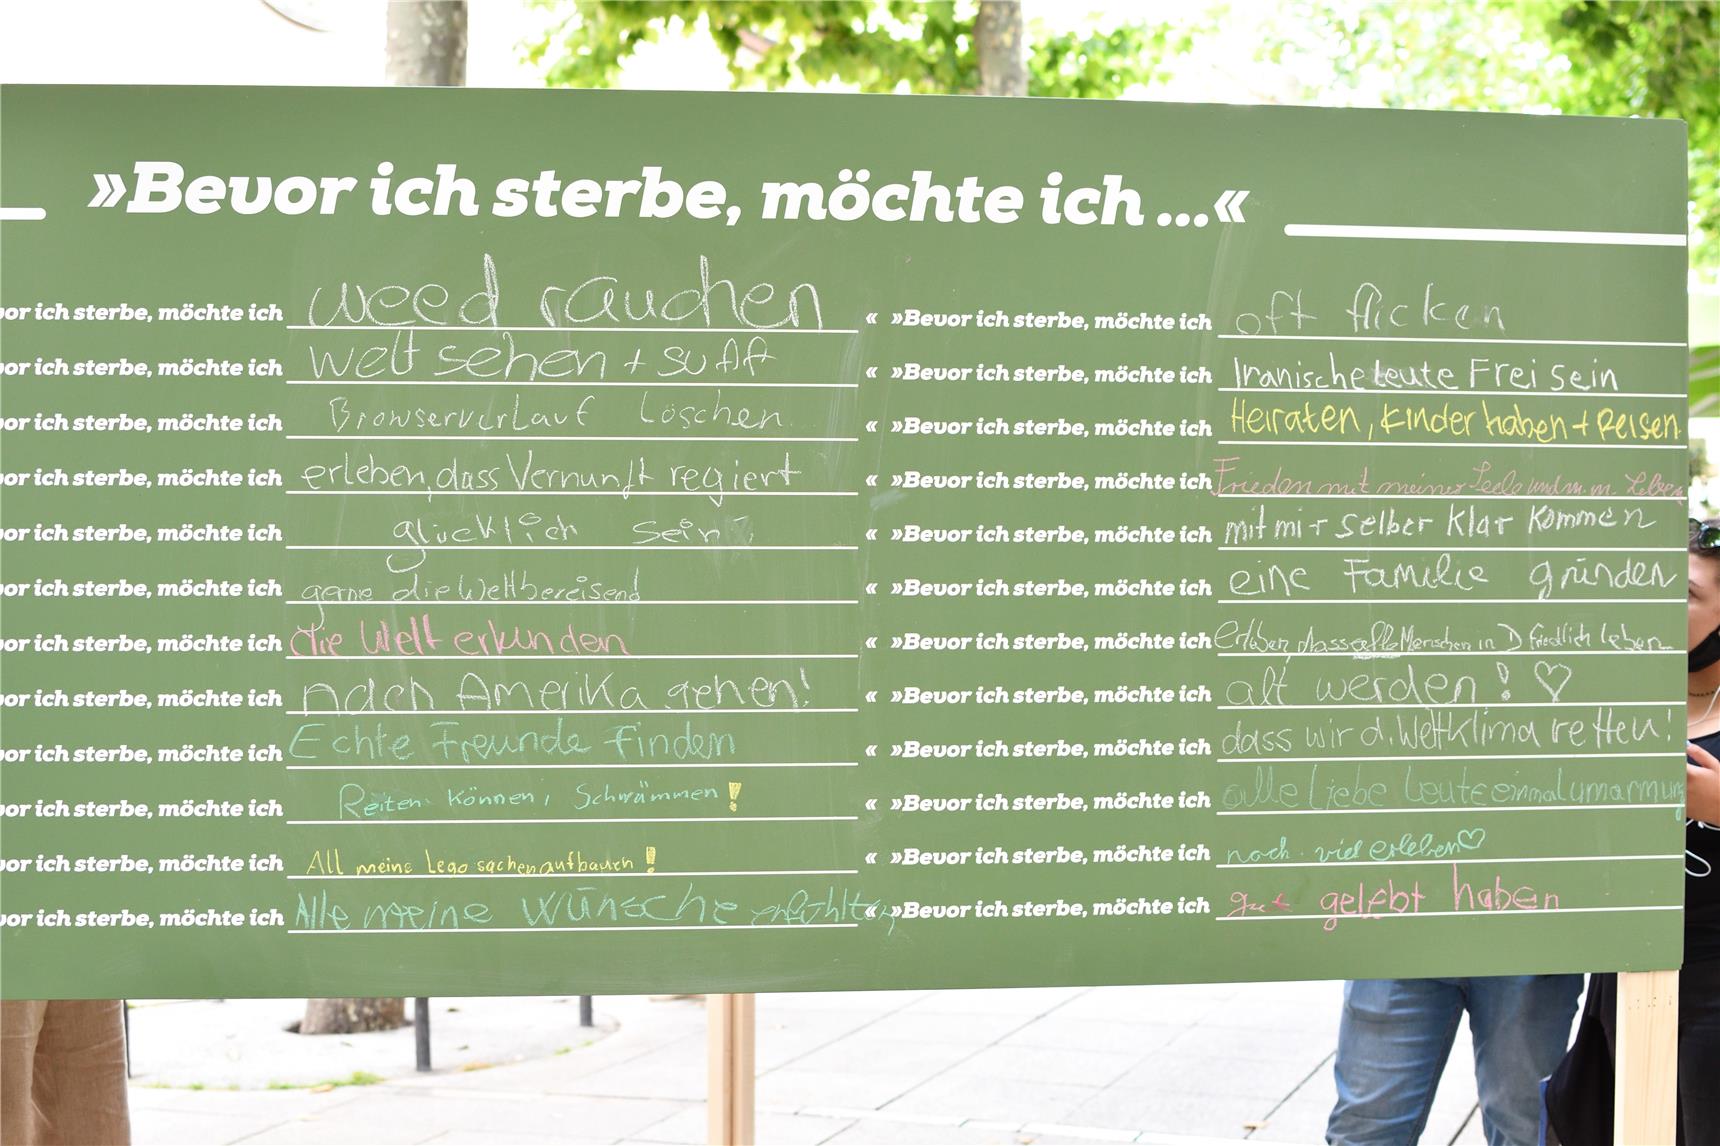 »Bevor ich sterbe, möchte ich ...«
vor ich sterbe, möchte ich weed rauchen «
vor ich sterbe, möchte ich welt sehen + suff «
vor ich sterbe, möchte ich Browserverlauf löschen «
vor ich sterbe, möchte ich erleben, dass Vernunft regiert «
vor ich sterbe, möchte ich glücklich sein «
vor ich sterbe, möchte ich gerne die Welt bereisend «
vor ich sterbe, möchte ich die Welt erkunden «
vor ich sterbe, möchte ich nach Amerika gehen! «
vor ich sterbe, möchte ich Echte Freunde finden «
vor ich sterbe, möchte ich Reiten können, Schwämmen! «
vor ich sterbe, möchte ich All meine Lego sachen aufbauen! «
vor ich sterbe, möchte ich Alle meine wünsche «
»Bevor ich sterbe, möchte ich oft ficken
»Bevor ich sterbe, möchte ich Iranische leute Frei sein
»Bevor ich sterbe, möchte ich Heiraten, Kinder haben + Reisen
»Bevor ich sterbe, möchte ich Frieden mit meiner Seele und m. m. Leben
»Bevor ich sterbe, möchte ich mit mir selber klar kommen
»Bevor ich sterbe, möchte ich eine Familie gründen
»Bevor ich sterbe, möchte ich erleben, dass alle Menschen in D friedlich leben
»Bevor ich sterbe, möchte ich alt werden! ♡
»Bevor ich sterbe, möchte ich dass wir d. Weltklima retten!
»Bevor ich sterbe, möchte ich alle liebe Leute einmal umarmung
»Bevor ich sterbe, möchte ich noch viel erleben ♡
»Bevor ich sterbe, möchte ich gut gelebt haben